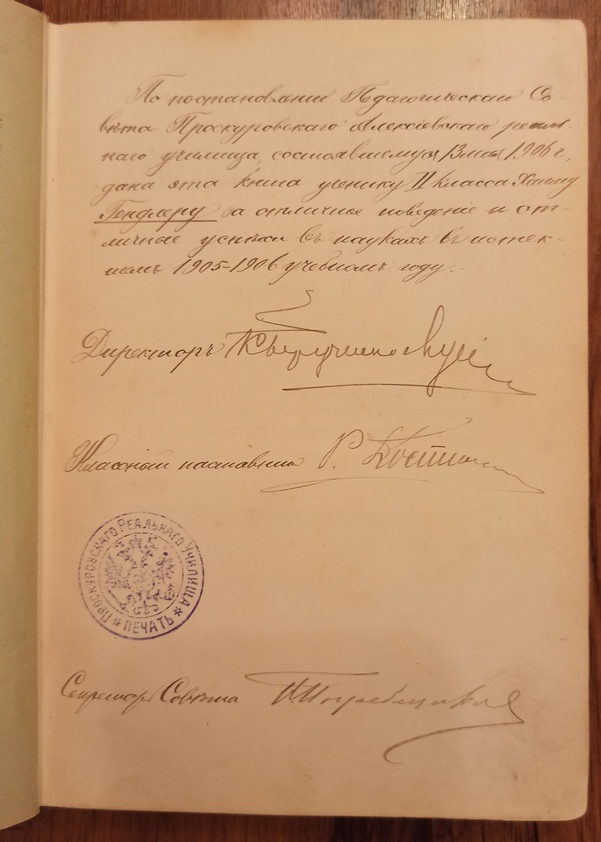 По постановленію Педагогическаго Со-
вѣта Проскуровскаго Алексѣевскаго реаль-
наго училища, состоявшемуся 13 мая 1906 г.,
дана эта книга ученику II класса Хаиму
Гендлеру за отличное поведеніе и от-
личные успѣхи въ наукахъ въ истек-
шемъ 1905-1906 учебномъ году.
Директоръ
Классный наставникъ Р.
ПРОСКУРОВСКАГО РЕАЛЬНАГО УЧИЛИЩА
* ПЕЧАТЬ *
Секретарь Совѣта